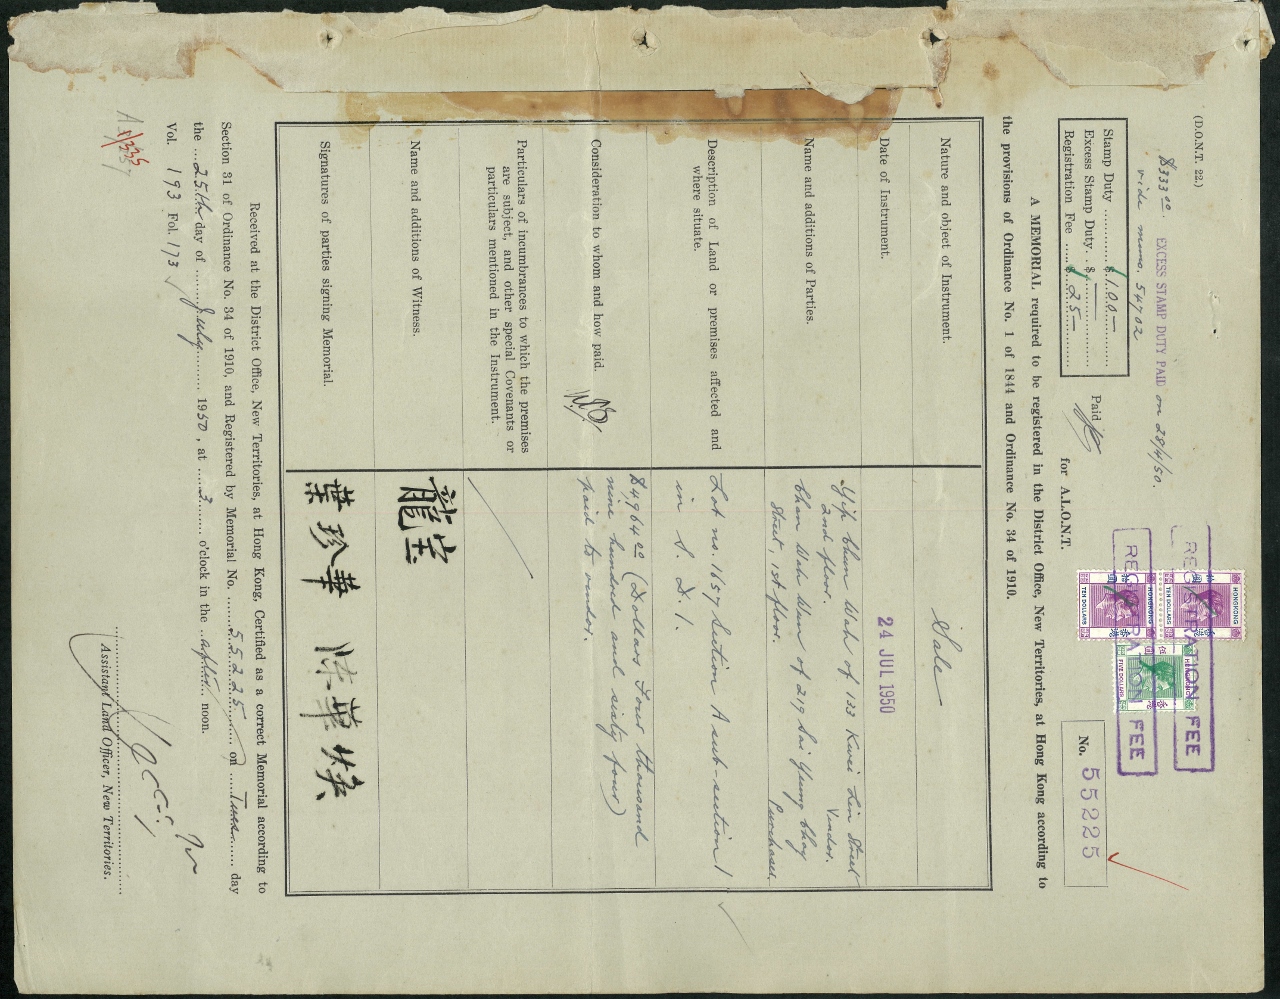 (D.O.N.T. 22.)
$333.00 EXCESS STAMP DUTY PAID on 28/4/50.
vide memo. 54702
Stamp Duty ............ $ 100—
Excess Stamp Duty. . $ —
Registration Fee ..... $ 25—
Paid
for A.L.O.N.T.
REGISTRATION FEE
REGISTRATION FEE
HONGKONG
TEN DOLLARS
HONGKONG
TEN DOLLARS
HONGKONG
FIVE DOLLARS
No. 55225
A MEMORIAL required to be registered in the District Office, New Territories, at Hong Kong according to
the provisions of Ordinance No. 1 of 1844 and Ordinance No. 34 of 1910.
Nature and object of Instrument.
Sale
Date of Instrument.
24 JUL 1950
Name and additions of Parties.
Yip Chun Wah of 133 Kwei Lin Street
2nd floor. Vendor.
Chan Wah Wun of 219 Sai Yeung Choy
Street, 1st floor. Purchaser.
Description of Land or premises affected and
where situate.
Lot no. 1657 Section A sub-section 1
in S. D. 1.
Consideration to whom and how paid.
$4,964.00 (Dollars Four thousand
nine hundred and sixty four)
paid to vendor.
Particulars of incumbrances to which the premises
are subject, and other special Covenants or
particulars mentioned in the Instrument.
Name and additions of Witness.
Signatures of parties signing Memorial.
葉珍華
Received at the District Office, New Territories, at Hong Kong, Certified as a correct Memorial according to
Section 31 of Ordinance No. 34 of 1910, and Registered by Memorial No. 55225 on Tues. day
the 25th day of July 1950, at 3 o'clock in the after noon.
Vol. 193 Fol. 173
Assistant Land Officer, New Territories.